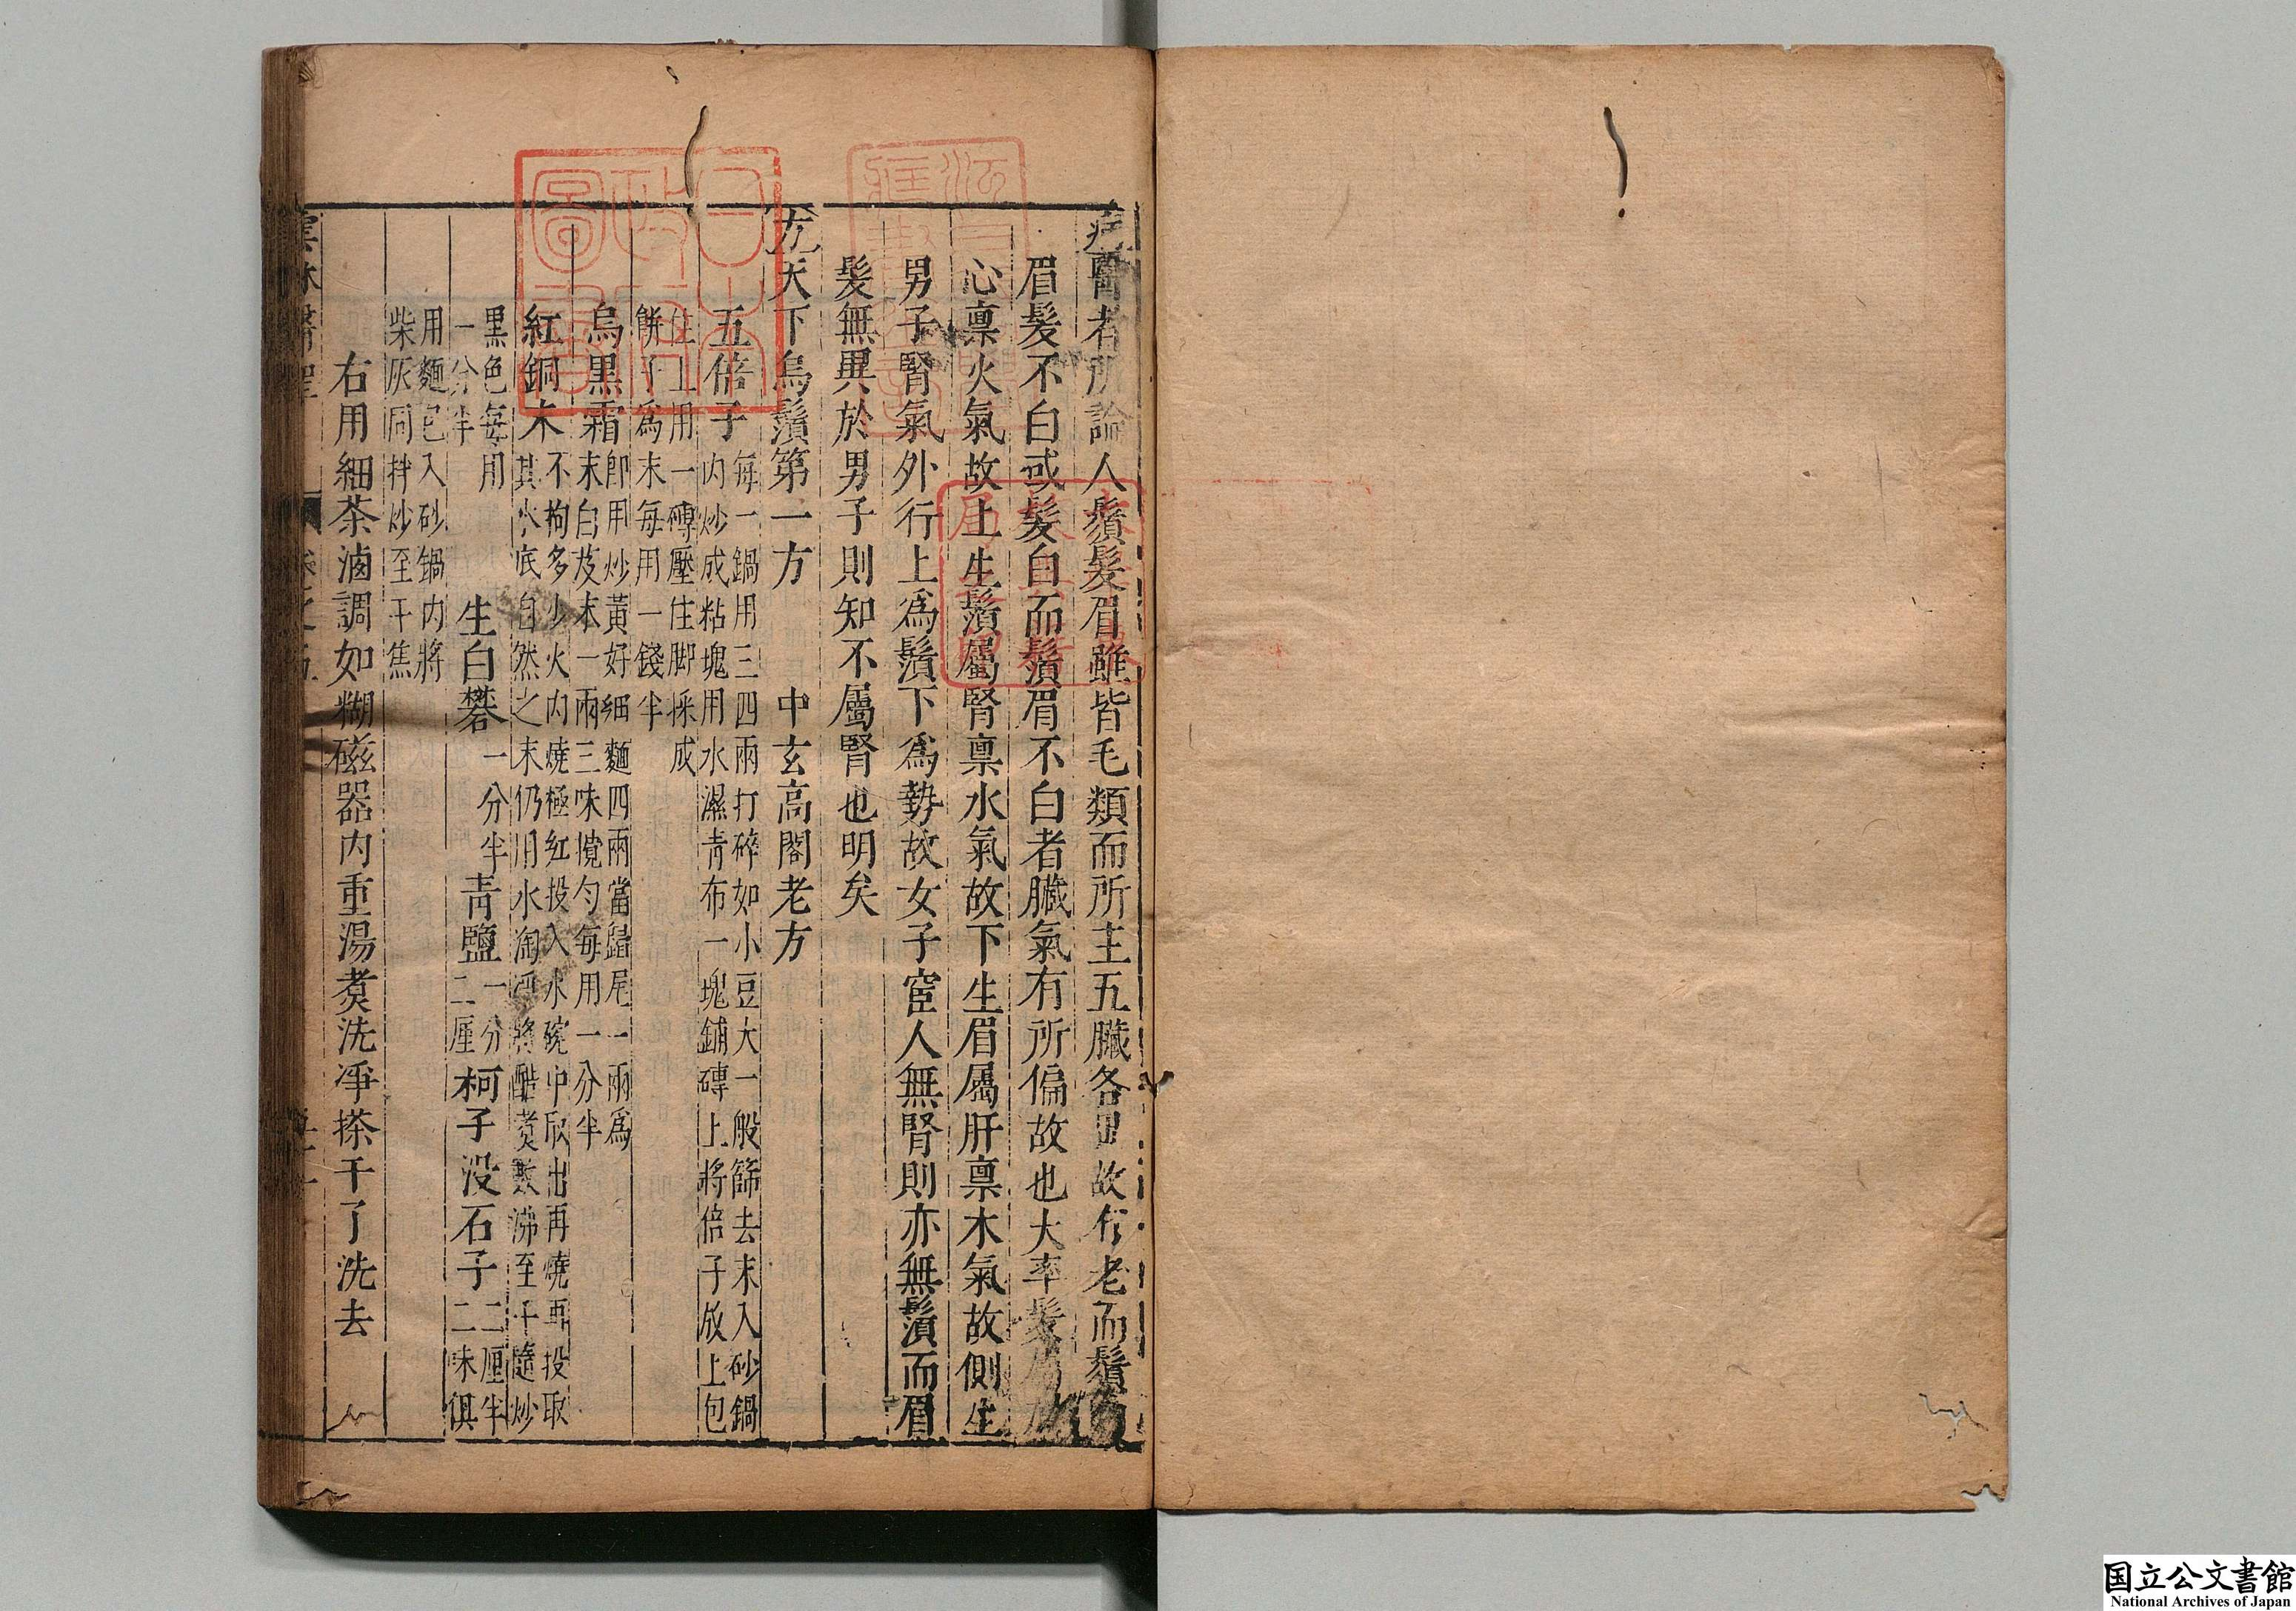 醫者所論人鬚髮眉雖皆毛類而所主五臟各異故有老而鬚
眉髮不白或髮白而鬚眉不白者臟氣有所偏故也大率髮屬
心禀火氣故上生鬚屬腎禀水氣故下生眉屬肝禀木氣故側生
男子腎氣外行上爲鬚下爲勢故女子宦人無腎則亦無鬚而眉
髮無異於男子則知不屬腎也明矣
天下烏鬚第一方 中玄高閣老方
五倍子
每一鍋用三四兩打碎如小豆大一般篩去末入砂鍋
内炒成粘塊用水濕青布一塊鋪磚上將倍子放上包
住上用一磚壓住脚採成
餅子爲末每用一錢半
烏黑霜
即用炒黃好細麵四兩當歸尾一兩爲
末白芨末一兩三味攪勻每用一分半
紅銅末
不拘多少火内燒極紅投入水碗中取出再燒再投取
其水底自然之末仍用水淘淨將醋煑數沸至干隨炒
黑色每用
一分半
生白礬
一分半
青鹽
一分
二厘
柯子没石子
二厘半
二味俱
用麵包入砂鍋内將
柴灰同拌炒至干焦
右用細茶滷調如糊磁器内重湯煑洗凈搽干了洗去
雲林醫聖
卷之五
国立公文書館
National Archives of Japan